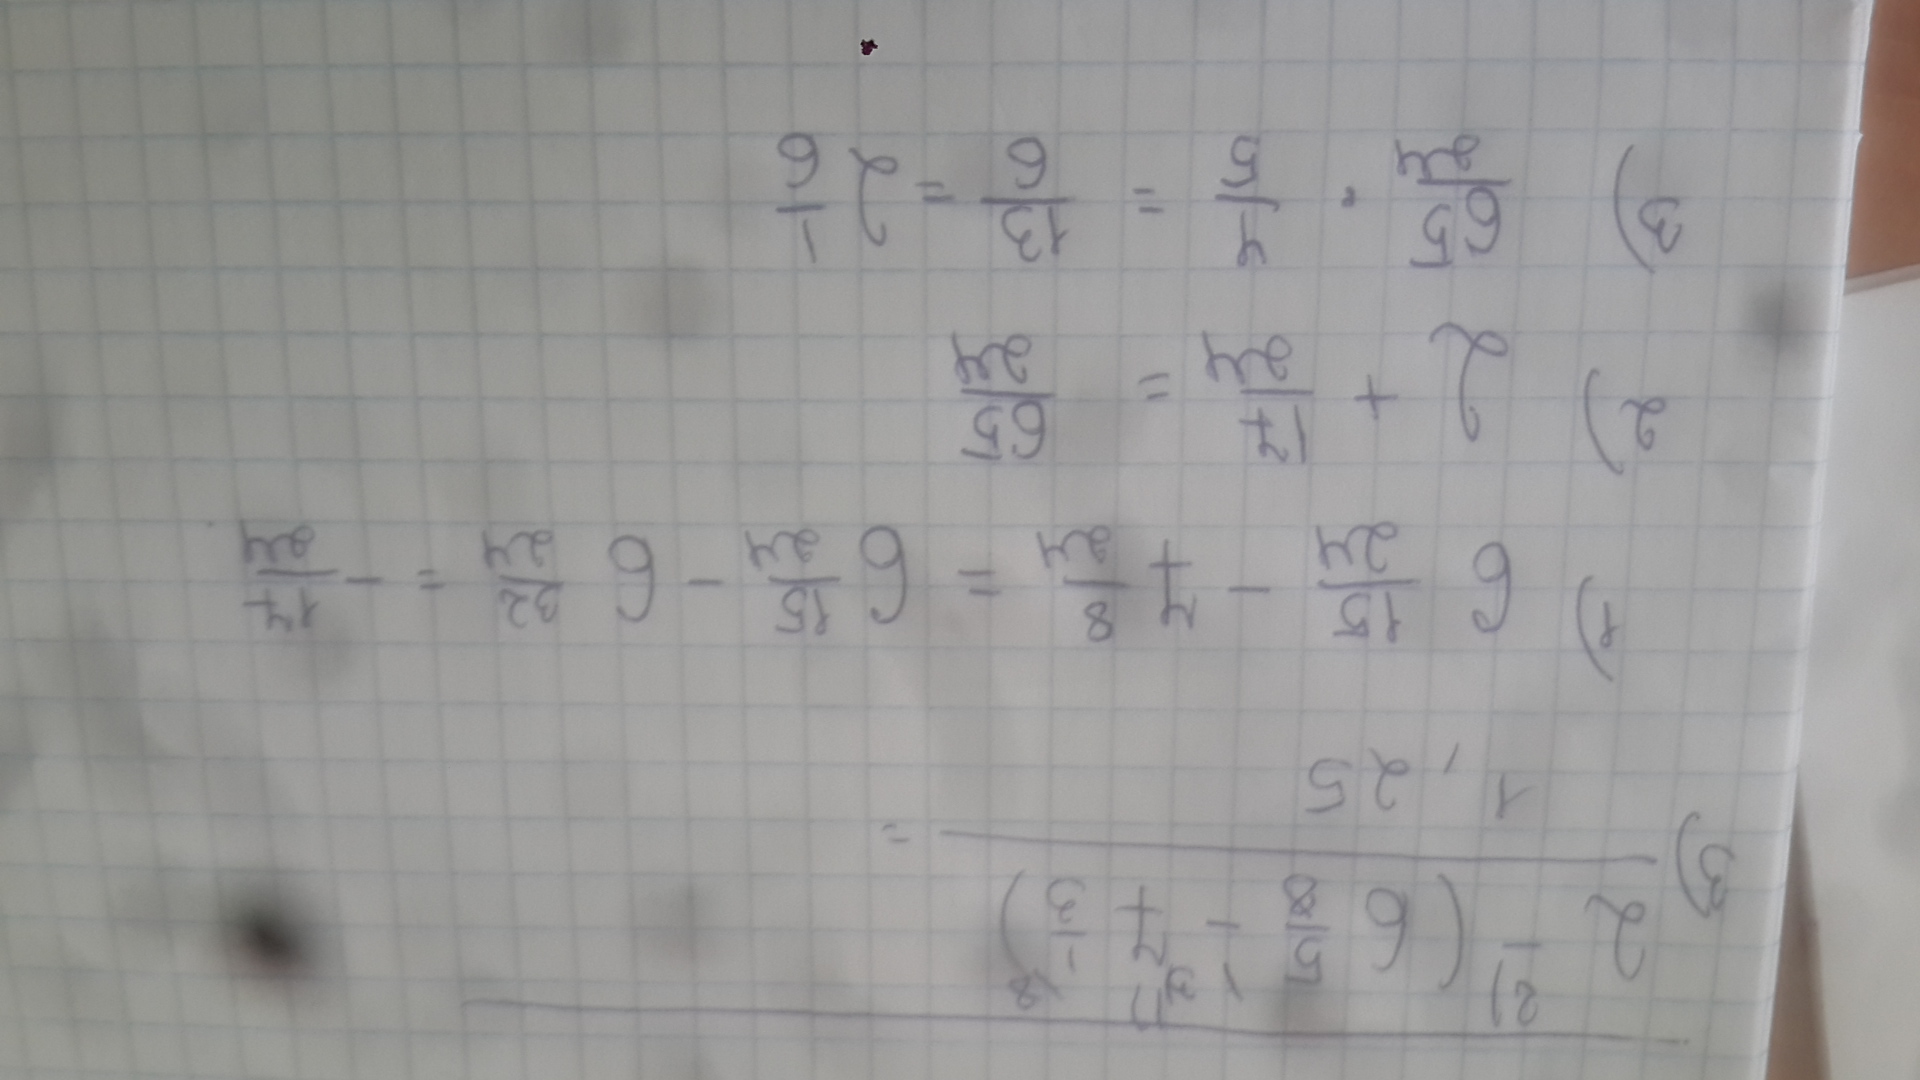 3) (2 - (6 5/8 - 7 1/3)) / 1,25 =
1) 6 15/24 - 7 8/24 = 6 15/24 - 6 32/24 = - 17/24
2) 2 + 17/24 = 65/24
3) 65/24 · 4/5 = 13/6 = 2 1/6